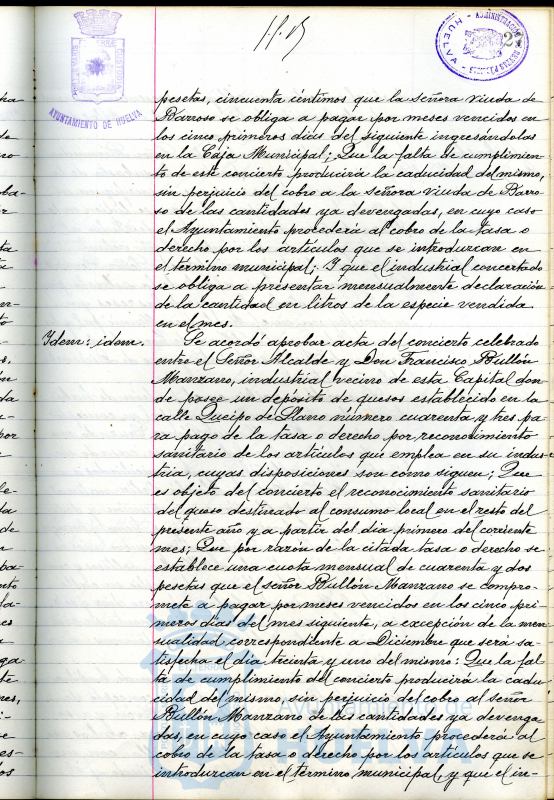 AYUNTAMIENTO DE HUELVA
HUELVA
pesetas, cincuenta céntimos que la señora viuda de
Barroso se obliga a pagar por meses vencidos en
los cinco primeros dias del siguiente ingresándolas
en la Caja Municipal; Que la falta de cumplimien-
to de este concierto producirá la caducidad del mismo,
sin perjuicio del cobro a la señora viuda de Barro-
so de las cantidades ya devengadas, en cuyo caso
el Ayuntamiento procederá al cobro de la tasa o
derecho por los artículos que se introduzcan en
el término municipal; Y que el industrial concertado
se obliga a presentar mensualmente declaración
de la cantidad en litros de la especie vendida
en el mes.
Idem: idem.
Se acordó aprobar acta del concierto celebrado
entre el Señor Alcalde y Don Francisco Rullón
Manzano, industrial vecino de esta Capital don-
de posee un depósito de quesos establecido en la
calle Queipo de Llano número cuarenta y tres pa-
ra pago de la tasa o derecho por reconocimiento
sanitario de los artículos que emplea en su indus-
tria, cuyas disposiciones son como siguen; Que
es objeto del concierto el reconocimiento sanitario
del queso destinado al consumo local en el resto del
presente año y a partir del dia primero del corriente
mes; Que por razón de la citada tasa o derecho se
establece una cuota mensual de cuarenta y dos
pesetas que el señor Rullón Manzano se compro-
mete a pagar por meses vencidos en los cinco pri-
meros dias del mes siguiente, a excepción de la men-
sualidad correspondiente a Diciembre que será sa-
tisfecha el dia treinta y uno del mismo: Que la fal-
ta de cumplimiento del concierto producirá la cadu-
cidad del mismo, sin perjuicio del cobro al señor
Rullón Manzano de las cantidades ya devenga-
das, en cuyo caso el Ayuntamiento procederá al
cobro de la tasa o derecho por los artículos que se
introduzcan en el término municipal, y que el in-
Ayuntamiento de
HUELVA